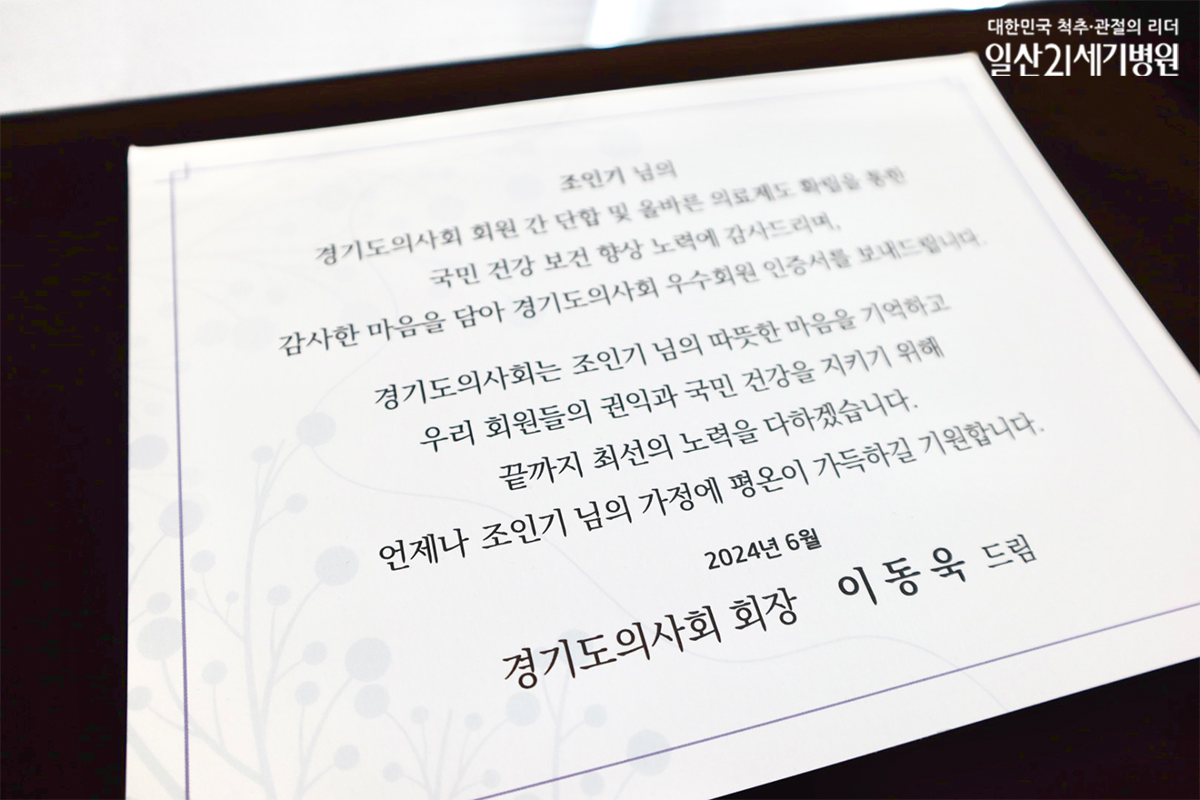 대한민국 척추·관절의 리더
일산21세기병원
조인기 님의
경기도의사회 회원 간 단합 및 올바른 의료제도 확립을 통한
국민 건강 보건 향상 노력에 감사드리며,
감사한 마음을 담아 경기도의사회 우수회원 인증서를 보내드립니다.
경기도의사회는 조인기 님의 따뜻한 마음을 기억하고
우리 회원들의 권익과 국민 건강을 지키기 위해
끝까지 최선의 노력을 다하겠습니다.
언제나 조인기 님의 가정에 평온이 가득하길 기원합니다.
2024년 6월
경기도의사회 회장 이동욱 드림